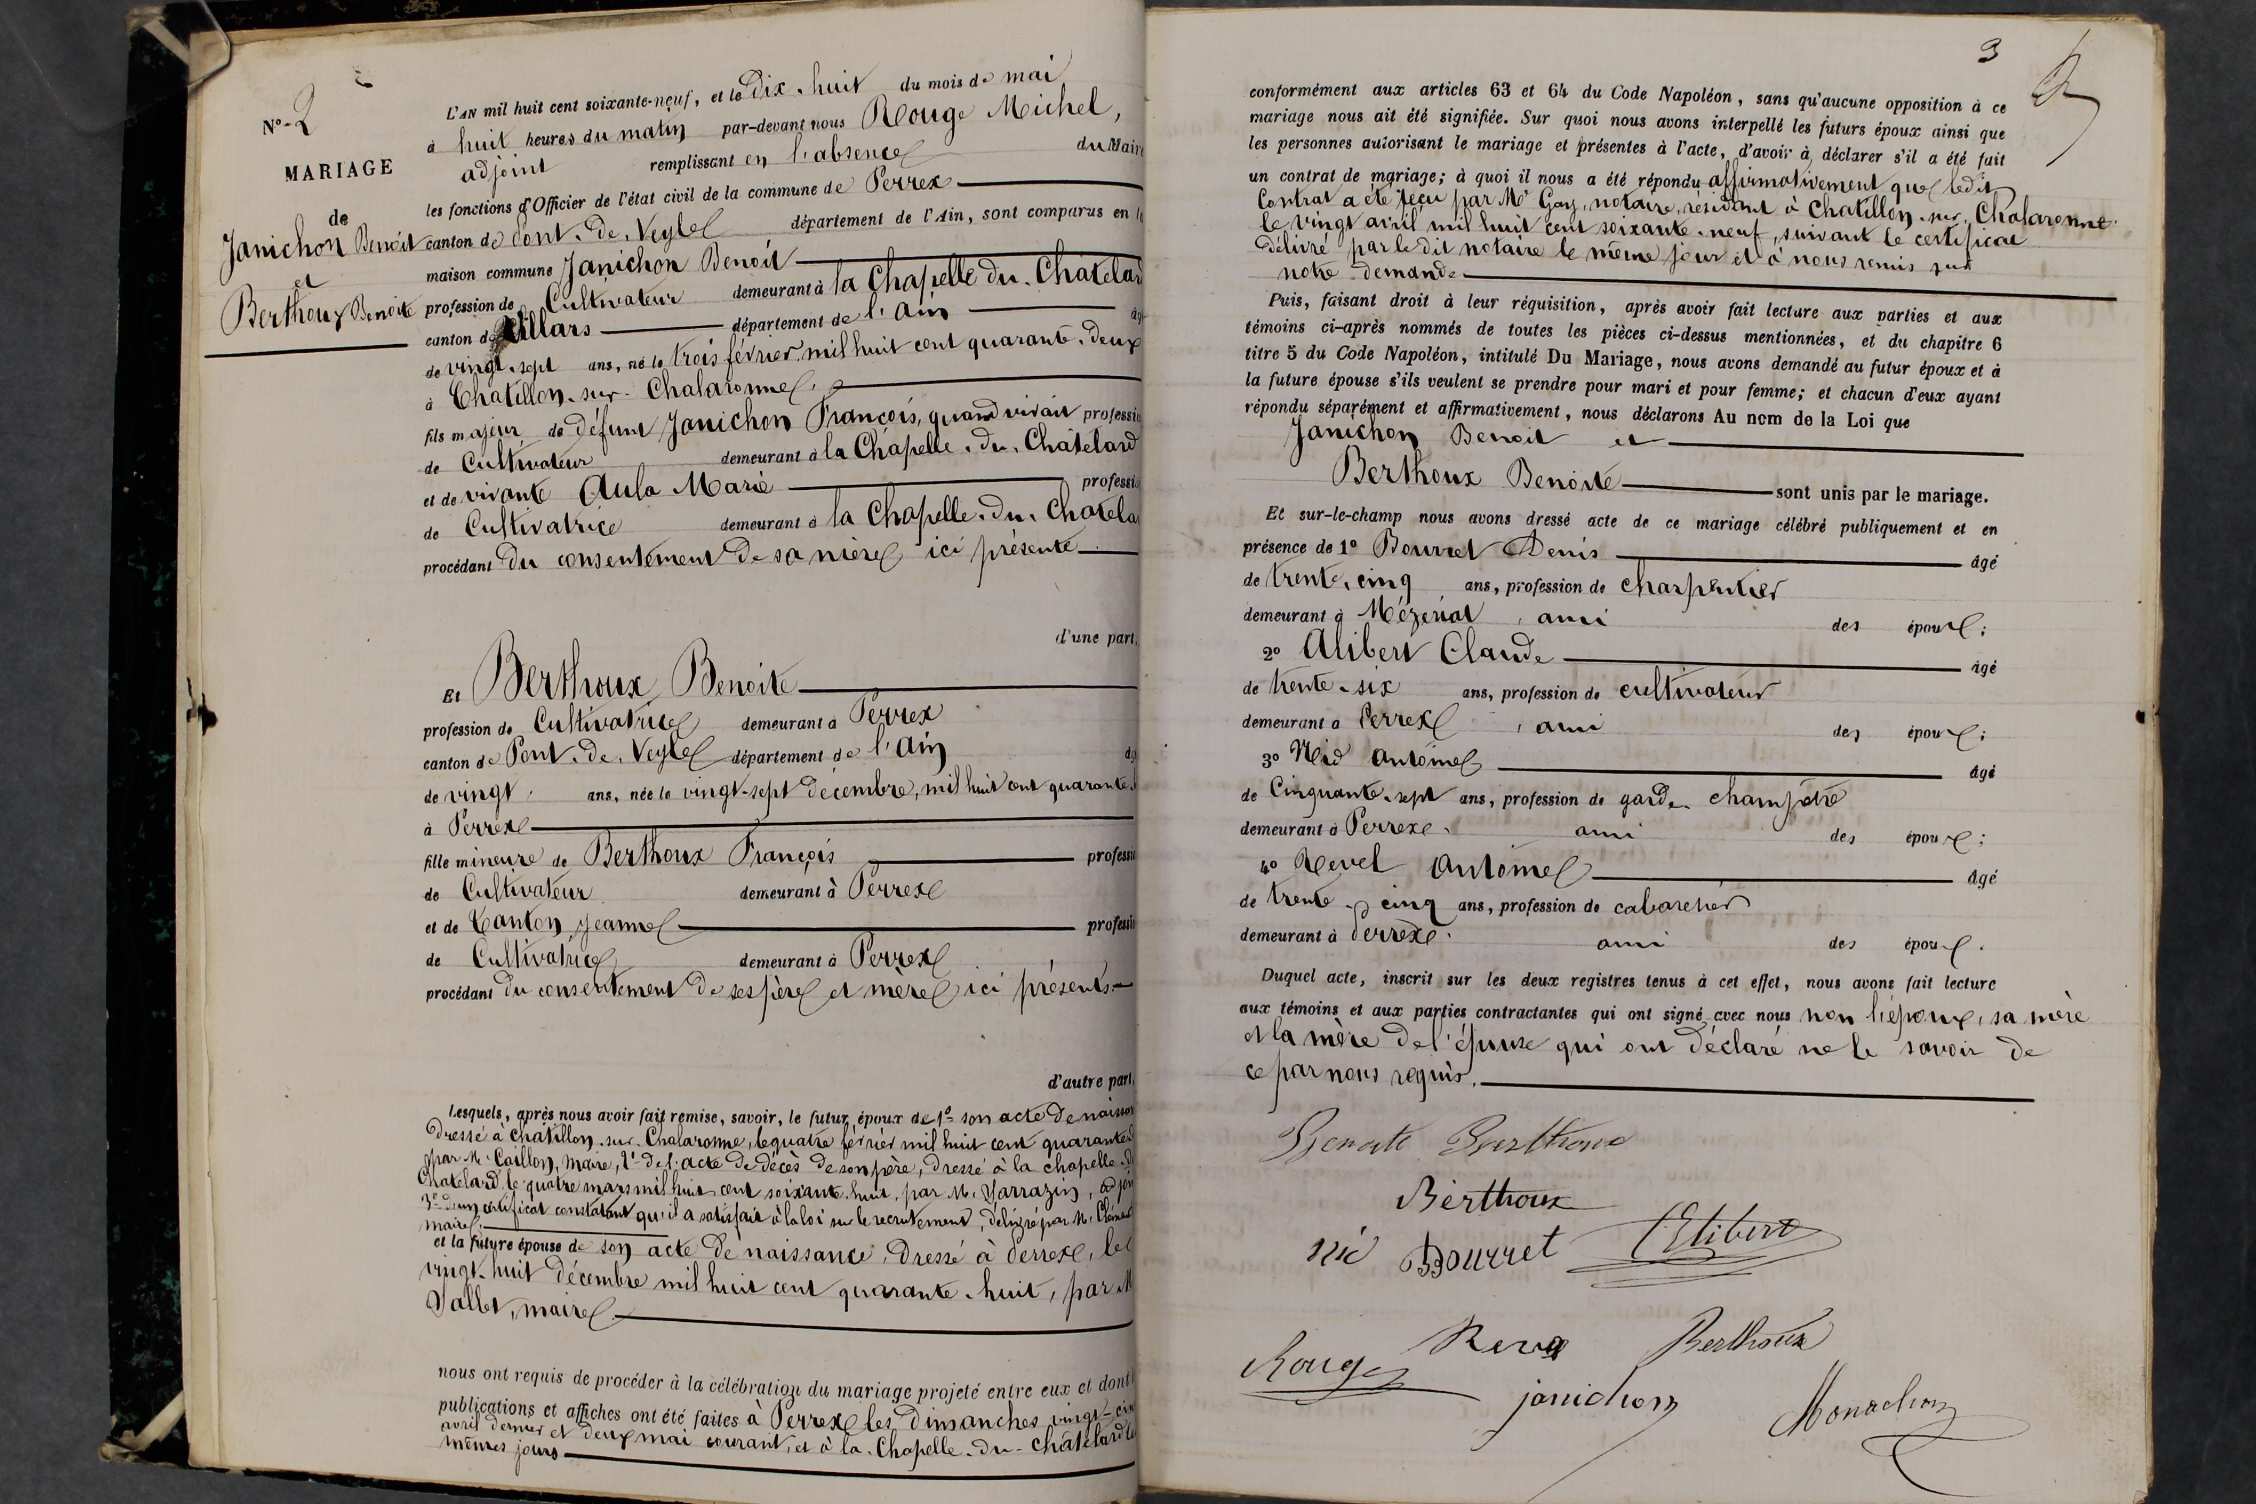 N° 2
MARIAGE
de
Janichon Benoit
et
Berthoux Benoite
L'AN mil huit cent soixante-neuf, et le Dix-huit du mois de mai
à huit heures du matin par-devant nous Rouge Michel,
adjoint remplissant en l'absence du Maire
les fonctions d'Officier de l'état civil de la commune de Perrex
canton de Pont-de-Veyle département de l'Ain, sont comparus en la
maison commune Janichon Benoit
profession de Cultivateur demeurant à la Chapelle-du-Châtelard
canton de Villars département de l'Ain âgé
de vingt-sept ans, né le trois février mil huit cent quarante-deux
à Chatillon-sur-Chalaronne,
fils majeur de défunt Janichon François, quand vivait professio
de Cultivateur demeurant à la Chapelle-du-Châtelard
et de vivante Aula Marie professio
de Cultivatrice demeurant à la Chapelle-du-Chatela
procédant du consentement de sa mère ici présente
d'une part,
Et Berthoux Benoite
profession de Cultivatrice demeurant à Perrex
canton de Pont-de-Veyle département de l'Ain âg
de vingt ans, née le vingt-sept décembre, mil huit cent quarante-
à Perrex
fille mineure de Berthoux François professio
de Cultivateur demeurant à Perrex
et de Canton Jeanne professio
de Cultivatrice demeurant à Perrex
procédant du consentement de ses père et mère ici présents
d'autre part,
Lesquels, après nous avoir fait remise, savoir, le futur époux de 1° son acte de naissan
dressé à Châtillon-sur-Chalaronne, le quatre février mil huit cent quarante-d
par M. Caillon, maire, 2° de l'acte de décès de son père, dressé à la chapelle-d
Chatelard, le quatre mars mil huit cent soixante-huit, par M. Sarrazin, adjoi
3° d'un certificat constatant qu'il a satisfait à la loi sur le recrutement, délivré par M. Clémen
maire
et la future épouse de son acte de naissance, dressé à Perrex, le
vingt-huit décembre mil huit cent quarante-huit, par M
Vallet, maire
nous ont requis de procéder à la célébration du mariage projeté entre eux et dont l
publications et affiches ont été faites à Perrex les dimanches vingt-cin
avril dernier et deux mai courant, et à la Chapelle-du-Châtelard le
mêmes jours
3
conformément aux articles 63 et 64 du Code Napoléon, sans qu'aucune opposition à ce
mariage nous ait été signifiée. Sur quoi nous avons interpellé les futurs époux ainsi que
les personnes autorisant le mariage et présentes à l'acte, d'avoir à déclarer s'il a été fait
un contrat de mariage; à quoi il nous a été répondu affirmativement que ledit
Contrat a été reçu par Me Guy, notaire, résidant à Chatillon-sur-Chalaronne
le vingt avril mil huit cent soixante-neuf, suivant le certificat
délivré par le dit notaire le même jour et à nous remis sur
notre demande
Puis, faisant droit à leur réquisition, après avoir fait lecture aux parties et aux
témoins ci-après nommés de toutes les pièces ci-dessus mentionnées, et du chapitre 6
titre 5 du Code Napoléon, intitulé Du Mariage, nous avons demandé au futur époux et à
la future épouse s'ils veulent se prendre pour mari et pour femme; et chacun d'eux ayant
répondu séparément et affirmativement, nous déclarons Au nom de la Loi que
Janichon Benoit et
Berthoux Benoite sont unis par le mariage.
Et sur-le-champ nous avons dressé acte de ce mariage célébré publiquement et en
présence de 1° Bourret Denis âgé
de trente-cinq ans, profession de charpentier
demeurant à Mézériat, ami des époux;
2° Alibert Claude âgé
de trente-six ans, profession de cultivateur
demeurant à Perrex, ami des époux;
3° Nid Antoine âgé
de Cinquante-sept ans, profession de garde-champêtre
demeurant à Perrex. ami des époux;
4° Revel Antoine âgé
de trente-cinq ans, profession de cabaretier
demeurant à Perrex. ami des époux.
Duquel acte, inscrit sur les deux registres tenus à cet effet, nous avons fait lecture
aux témoins et aux parties contractantes qui ont signé avec nous non l'époux, sa mère
et la mère de l'épouse qui ont déclaré ne le savoir de
ce par nous requis.
Benoite Berthoux
Berthoux
Nid Bourret Alibert
Rouge Revel Berthoux
janichon Monachon